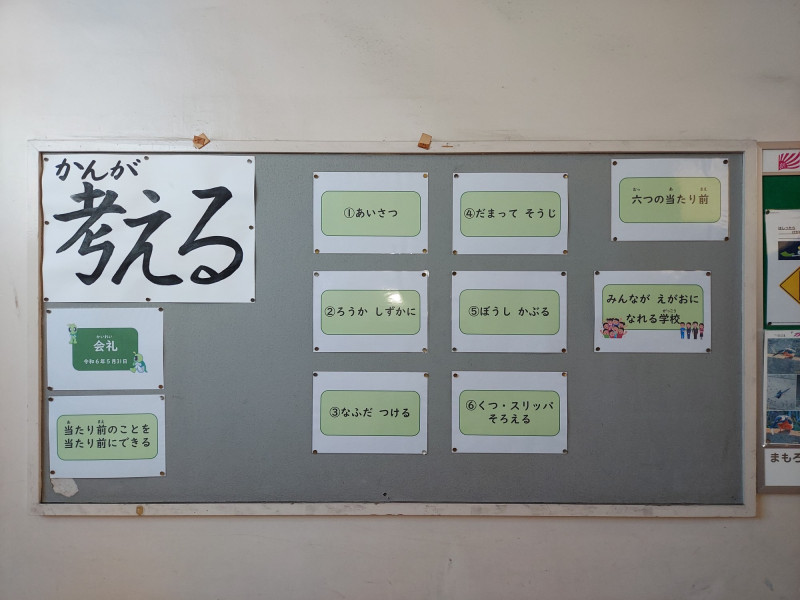 かんが
考える
かいれい
会礼
令和6年5月31日
あ まえ
当たり前のことを
当たり前にできる
①あいさつ
②ろうか しずかに
③なふだ つける
④だまって そうじ
⑤ぼうし かぶる
⑥くつ・スリッパ
そろえる
むっ あ まえ
六つの当たり前
みんなが えがおに
がっこう
なれる学校
まもろ